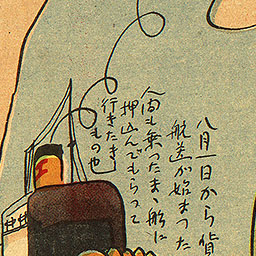 八月一日から貨
航送が始まつた
人間も乗つたまゝ船に
押込んでもらつて
行きたき
もの也